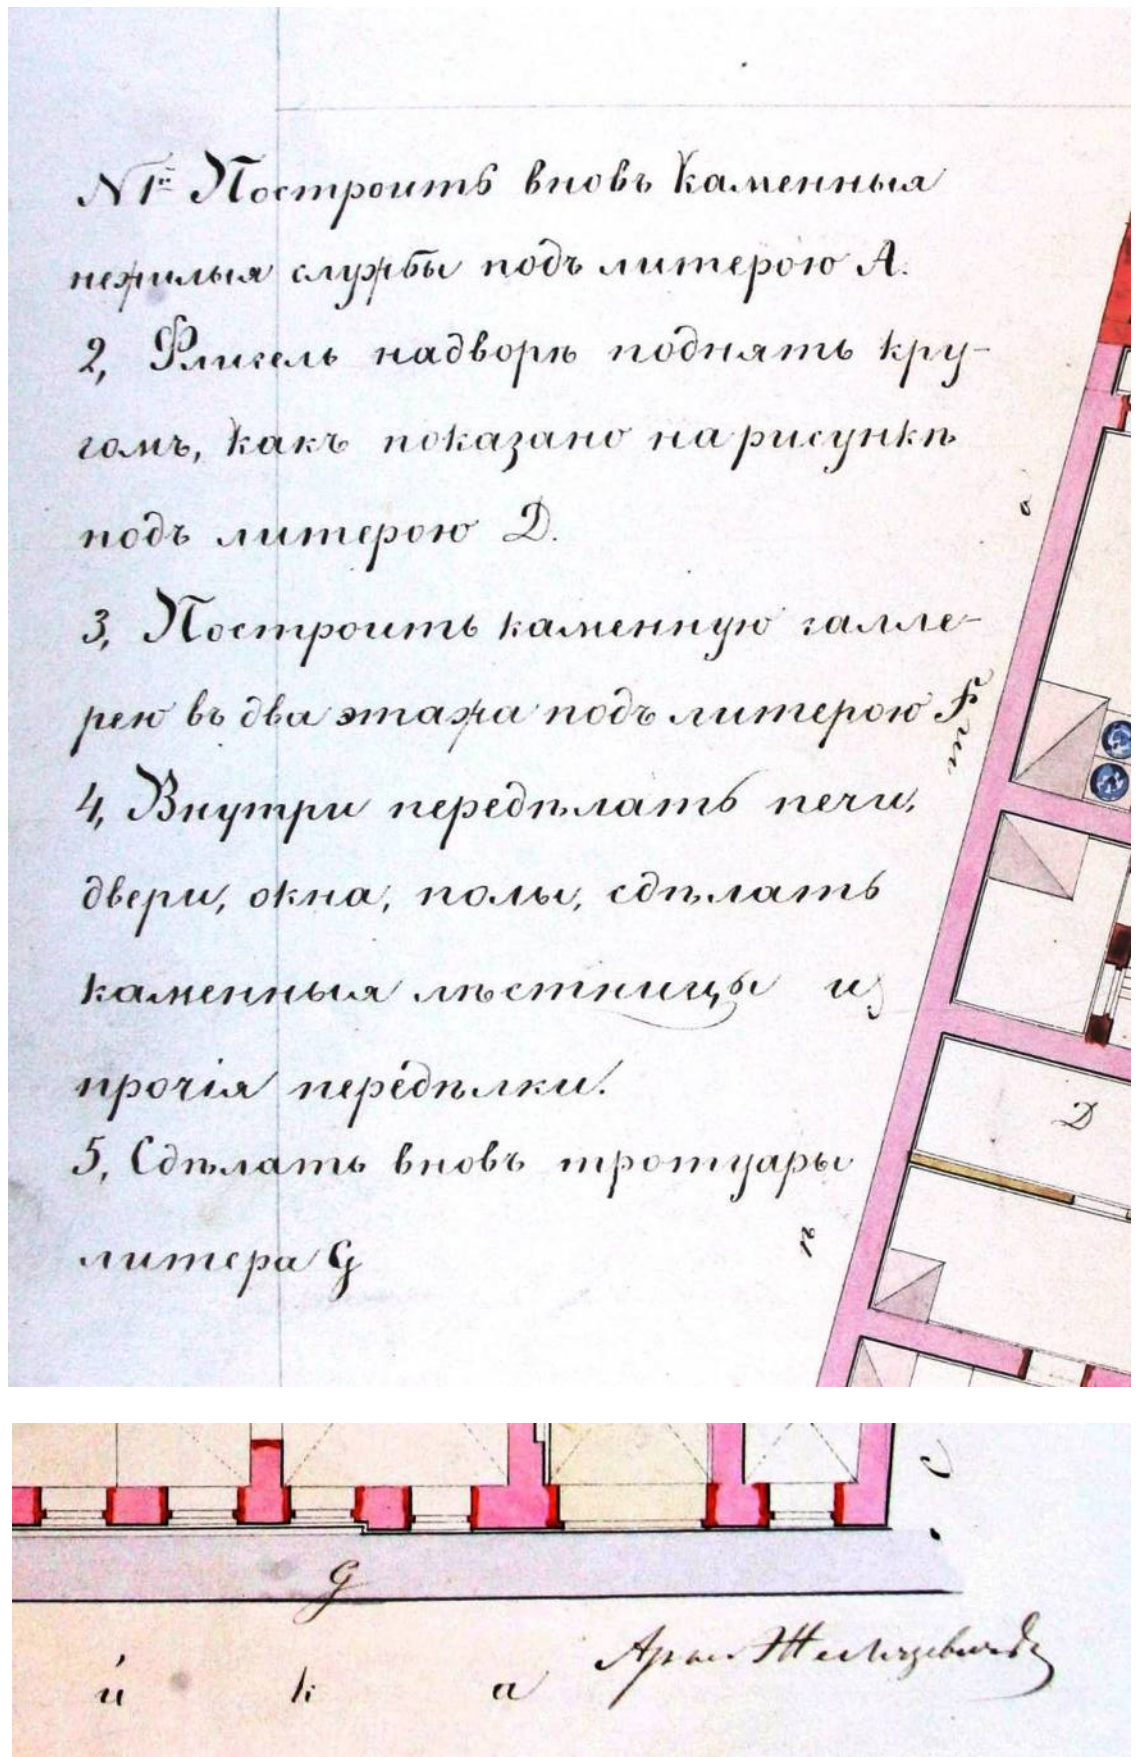 № 1й Построить вновь каменныя
нежилыя службы подъ литерою А.
2, Флигель надворѣ поднять кру-
гомъ, какъ показано на рисункѣ
подъ литерою D.
3, Построить каменную галле-
рею въ два этажа подъ литерою F
4, Внутри передѣлать печи,
двери, окна, полы, сдѣлать
каменныя лѣстницы и
прочія передѣлки.
5, Сдѣлать вновь тротуары
литера G
D
G
й к а